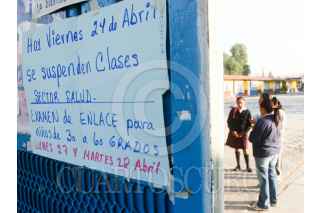 Hoy Viernes 24 de Abril
se suspenden Clases
SECTOR SALUD.
EXAMEN de ENLACE para
niños de 3o a 6o GRADOS
LUNES 27 y MARTES 28 Abril
CLAROSCURO